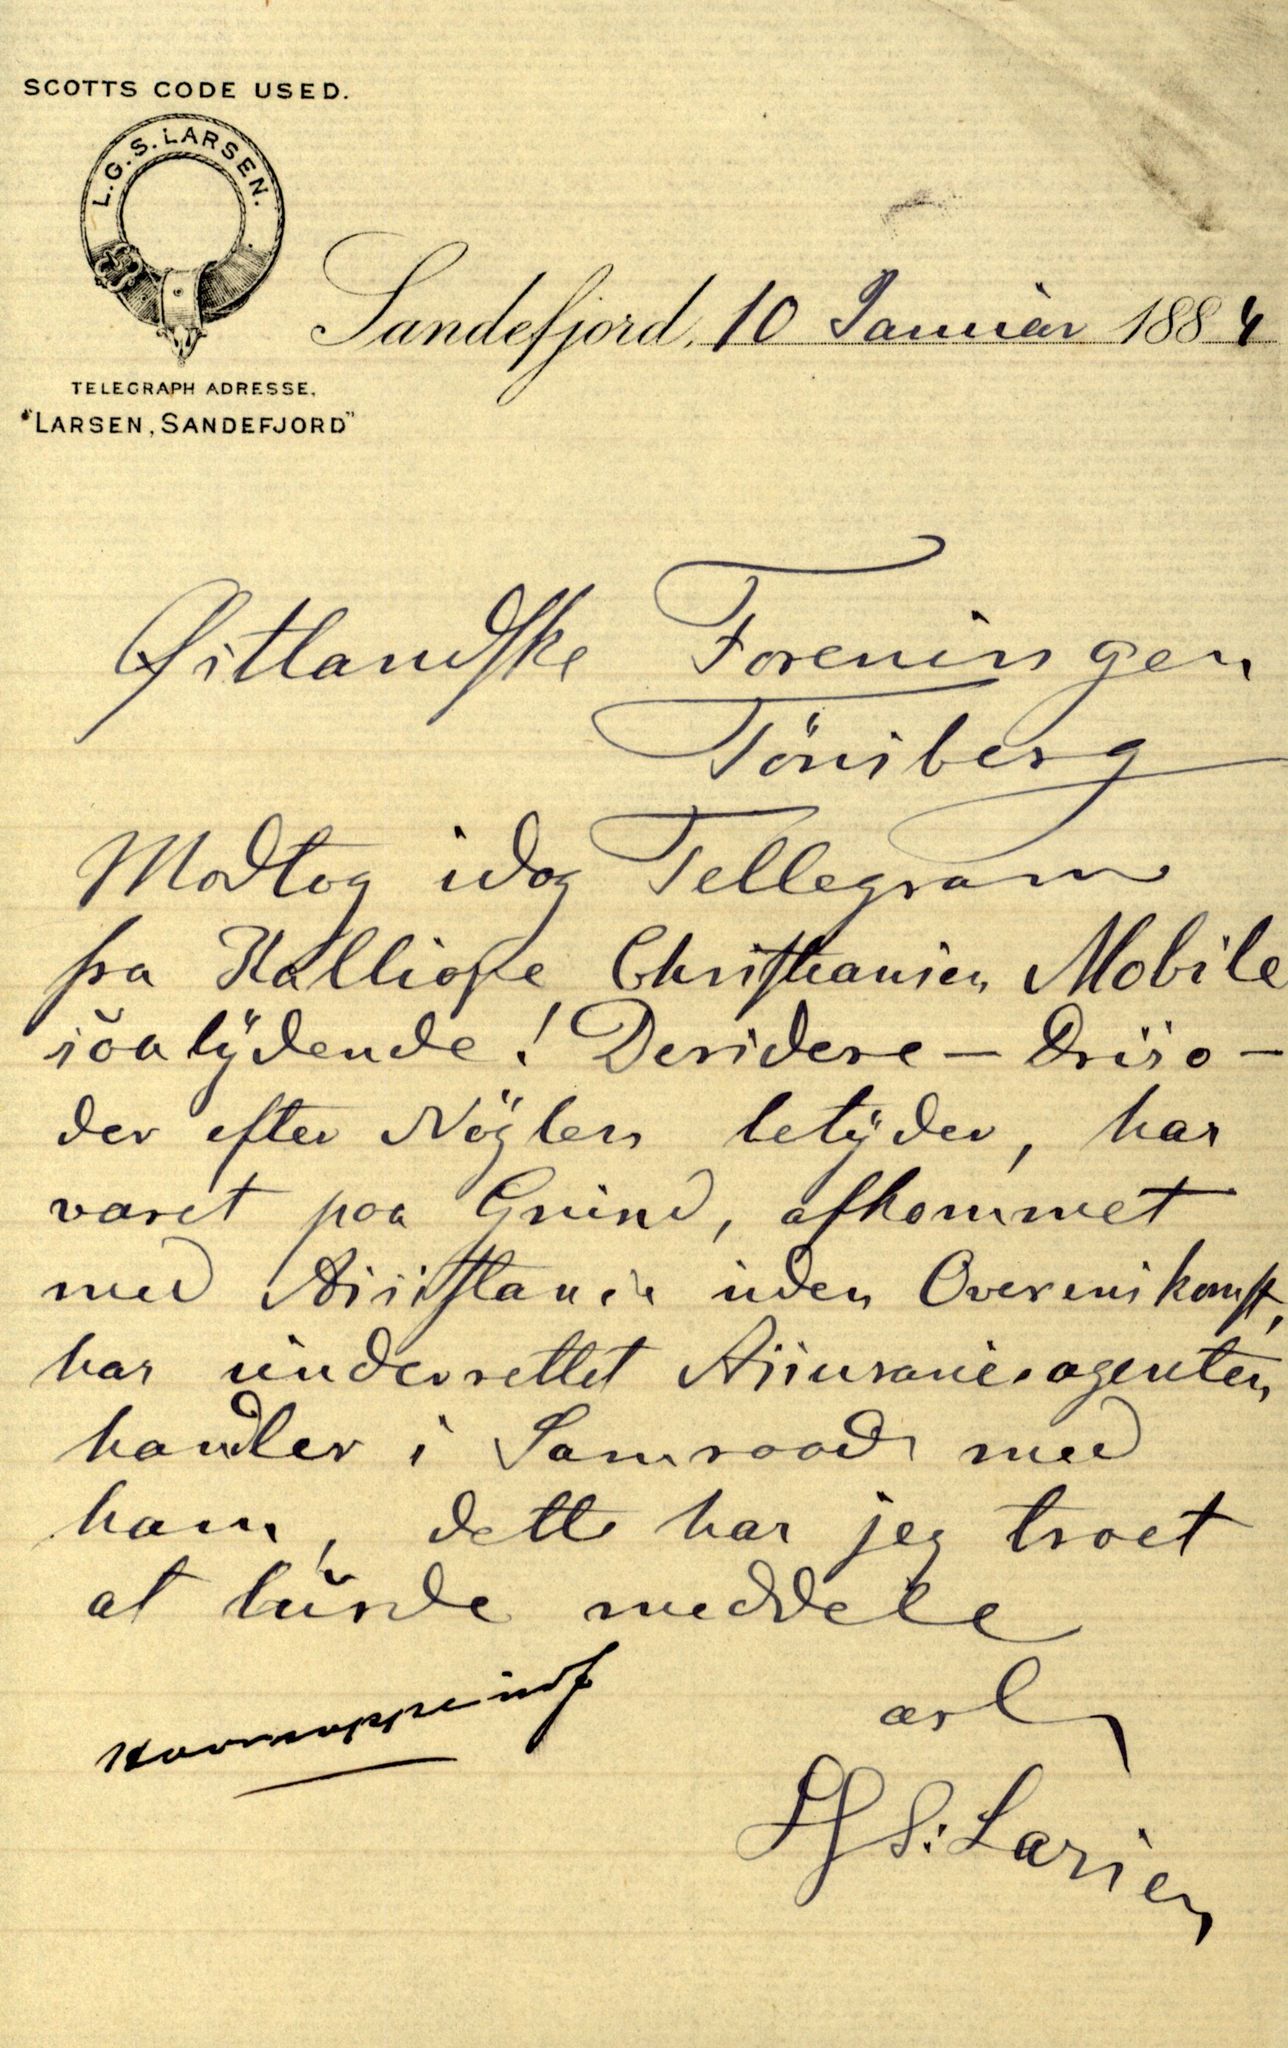 SCOTTS CODE USED.
L.G.S. LARSEN.
Sandefjord, 10 Januar 1884
TELEGRAPH ADRESSE.
"LARSEN, SANDEFJORD"
Østlandske Foreningen
Tönsberg
Modtog idag Tellegram
fra Kalliope Christiansen Mobile
saalydende! Desidere — Driso —
der efter Nöglen betyder, har
været paa Grund, afkommet
med Assistance uden Overenskomst,
har underrettet Assuranceagenten
handler i Samraad med
ham, dette har jeg troet
at burde meddele
ærb
LGS. Larsen